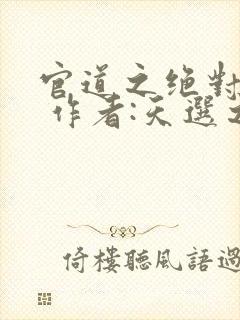 官道之绝对
作者:天選之
倚樓聽風語過